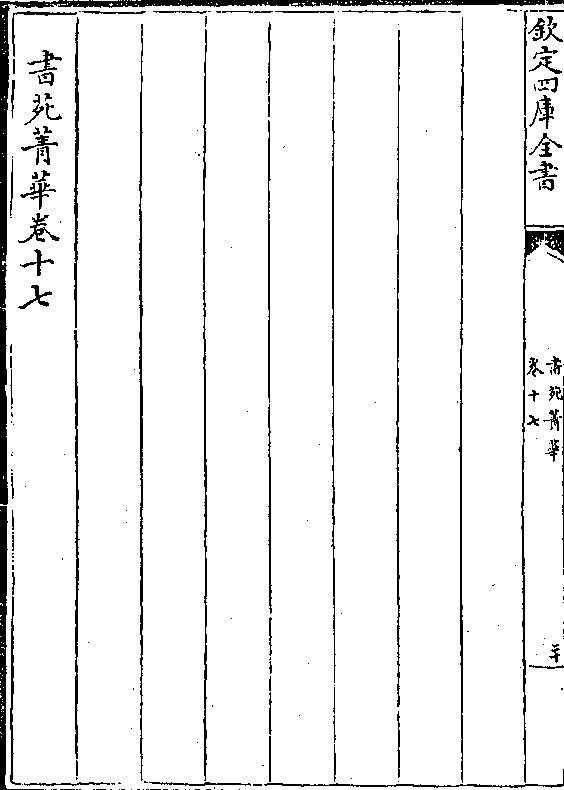 欽定四庫全書
書苑菁華
卷十七
二十
書苑菁華卷十七